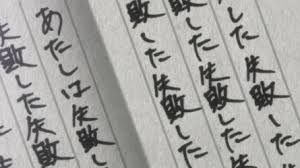 した失敗
敗した失敗した
敗した失敗した
あたしは失敗し
失敗した失敗